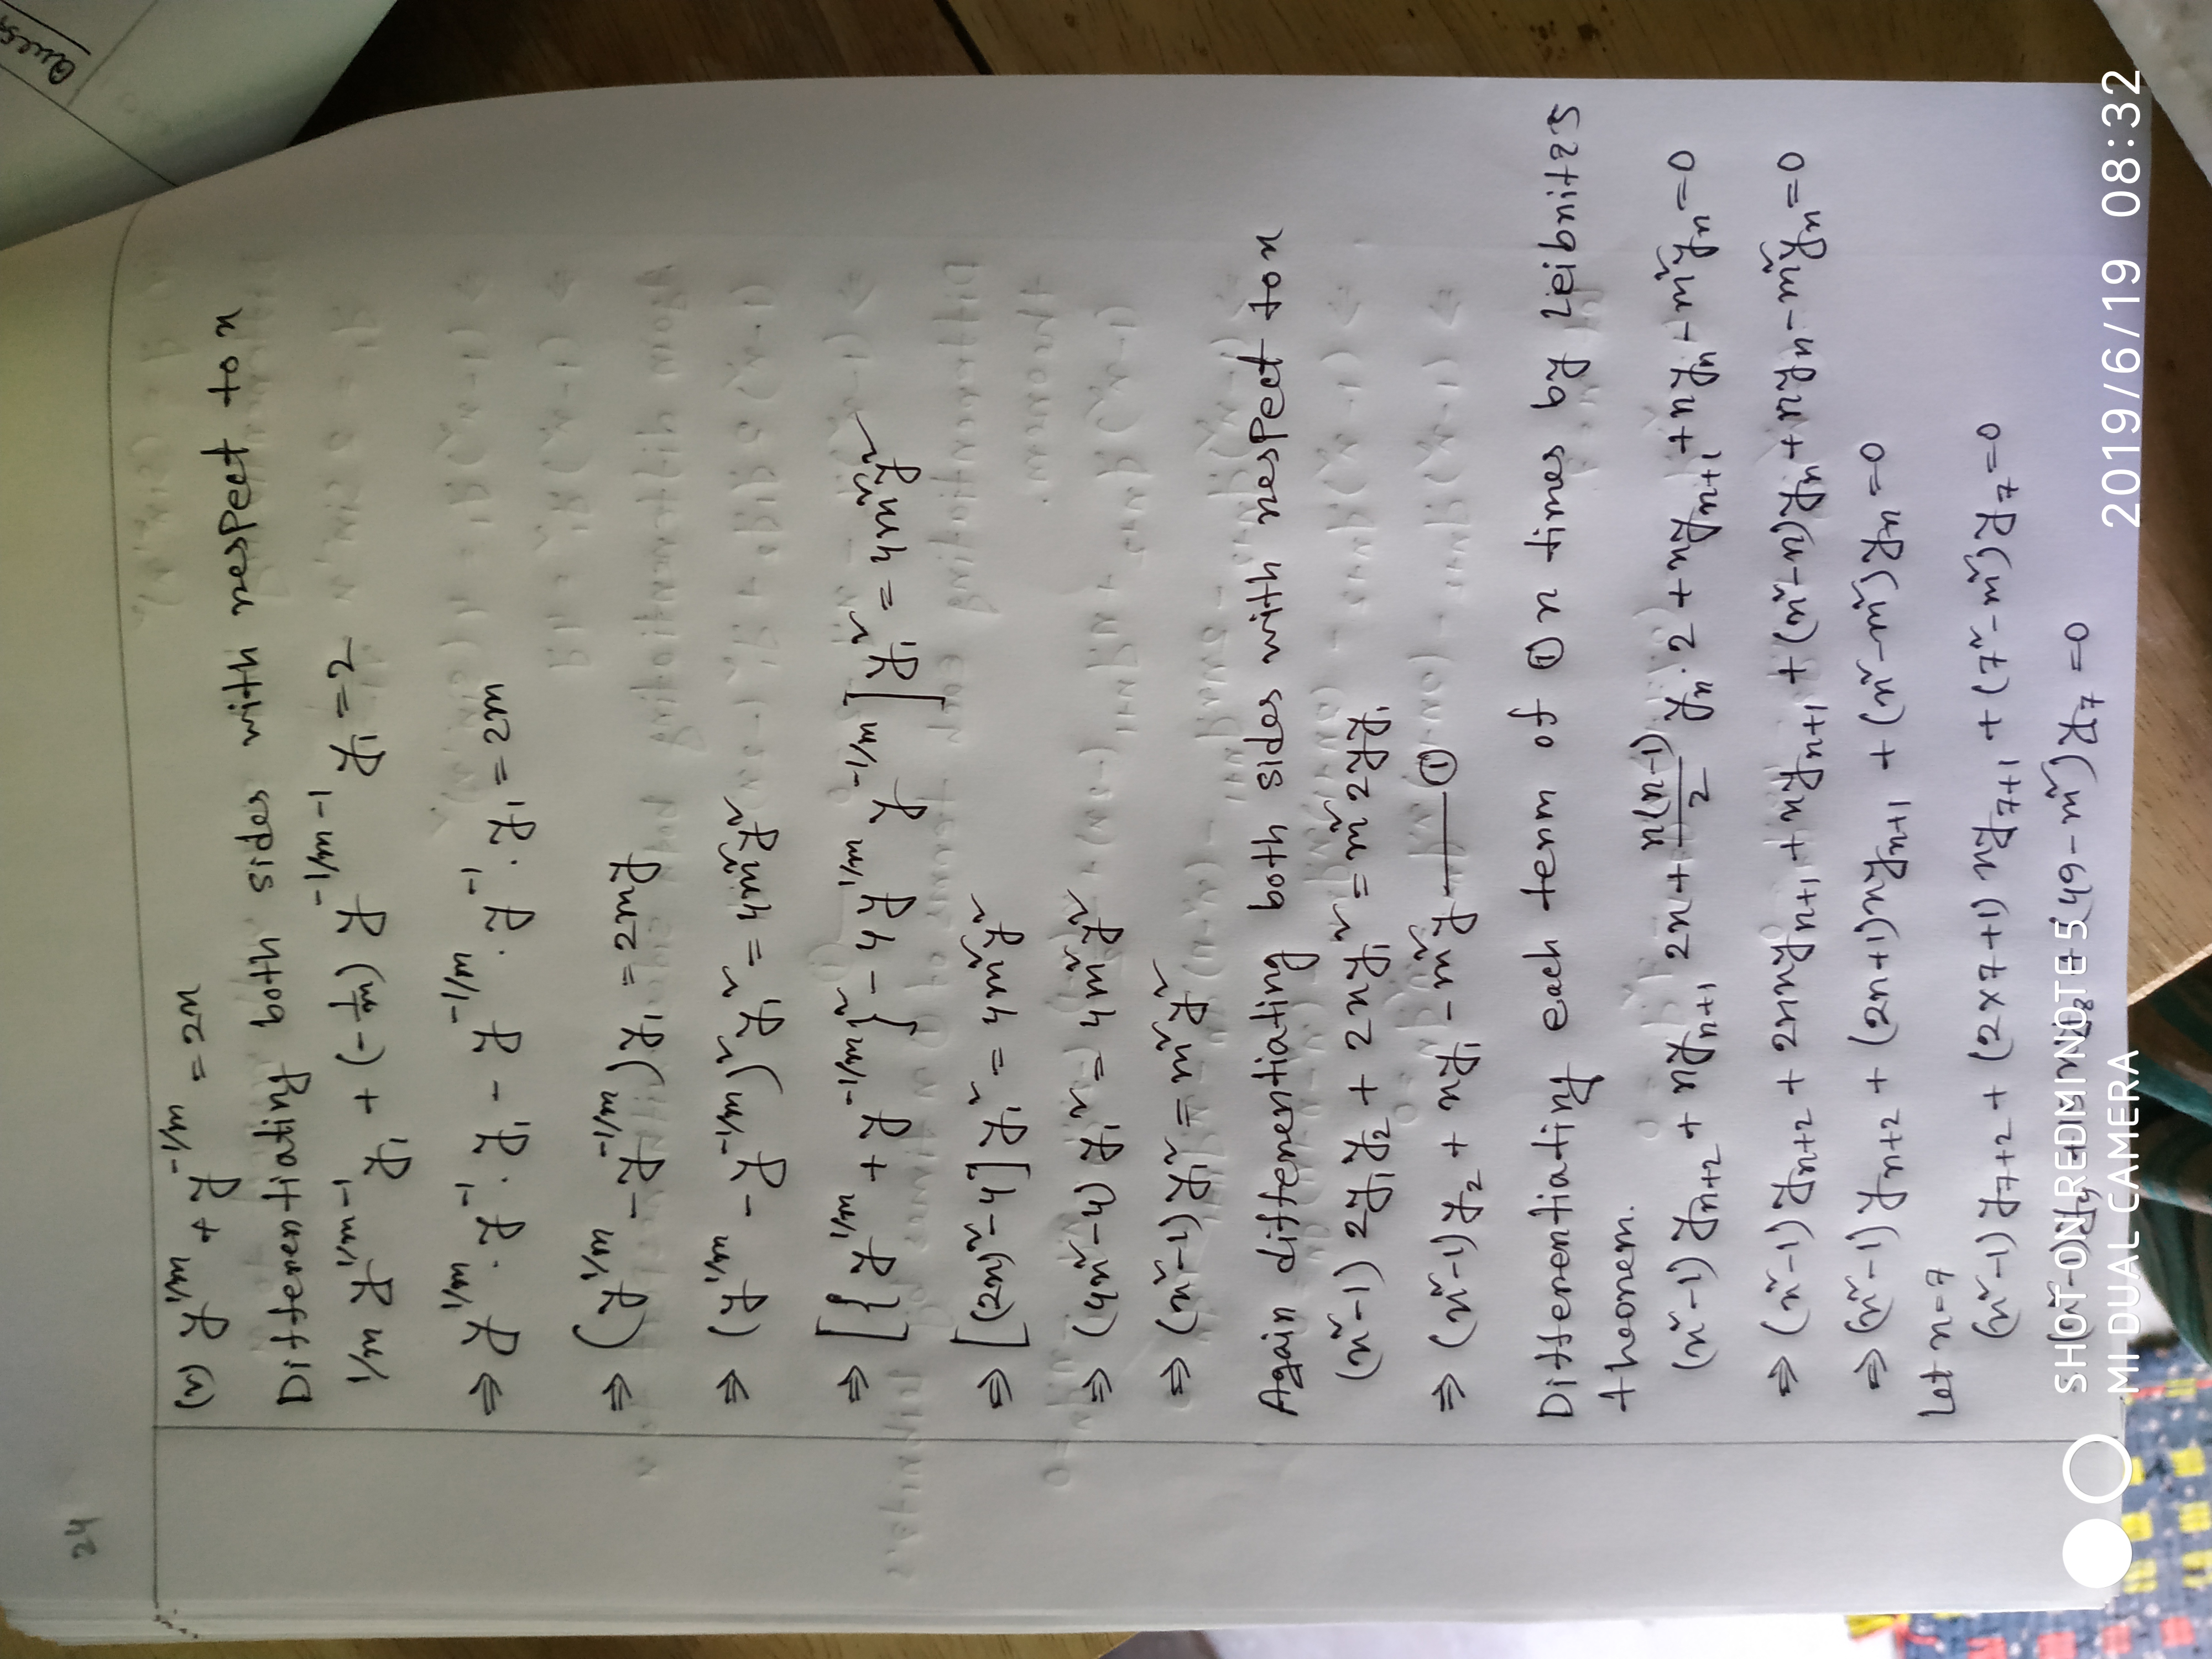 24
Ques
(v) y^{1/m} + y^{-1/m} = 2x
Differentiating both sides with respect to x
1/m y^{1/m-1} y₁ + (-1/m) y^{-1/m-1} y₁ = 2
⇒ y^{1/m} · y^{-1} · y₁ - y^{-1/m} · y^{-1} · y₁ = 2m
⇒ (y^{1/m} - y^{-1/m}) y₁ = 2my
⇒ (y^{1/m} - y^{-1/m})² y₁² = 4m²y²
⇒ [{y^{1/m} + y^{-1/m}}² - 4y^{1/m} y^{-1/m}] y₁² = 4m²y²
⇒ [(2x)² - 4] y₁² = 4m²y²
⇒ (4x² - 4) y₁² = 4m²y²
⇒ (x² - 1) y₁² = m²y²
Again differentiating both sides with respect to x
(x² - 1) 2y₁y₂ + 2xy₁² = m² 2yy₁
⇒ (x² - 1) y₂ + xy₁ - m²y —— ①
Differentiating each term of ① n times by Leibnitz's
theorem.
(x² - 1) y_{n+2} + ny_{n+1} 2x + n(n-1)/2 y_n · 2 + xy_{n+1} + ny_n - m²y_n = 0
⇒ (x² - 1) y_{n+2} + 2nxy_{n+1} + xy_{n+1} + (n² - n) y_n + ny_n - m²y_n = 0
⇒ (x² - 1) y_{n+2} + (2n+1) xy_{n+1} + (n² - m²) y_n = 0
Let n = 7
(x² - 1) y_{7+2} + (2×7+1) xy_{7+1} + (7² - m²) y₇ = 0
(x² - 1) y₉ + 15 xy₈ + (49 - m²) y₇ = 0
SHOT ON REDMI NOTE 5
MI DUAL CAMERA
2019/6/19 08:32